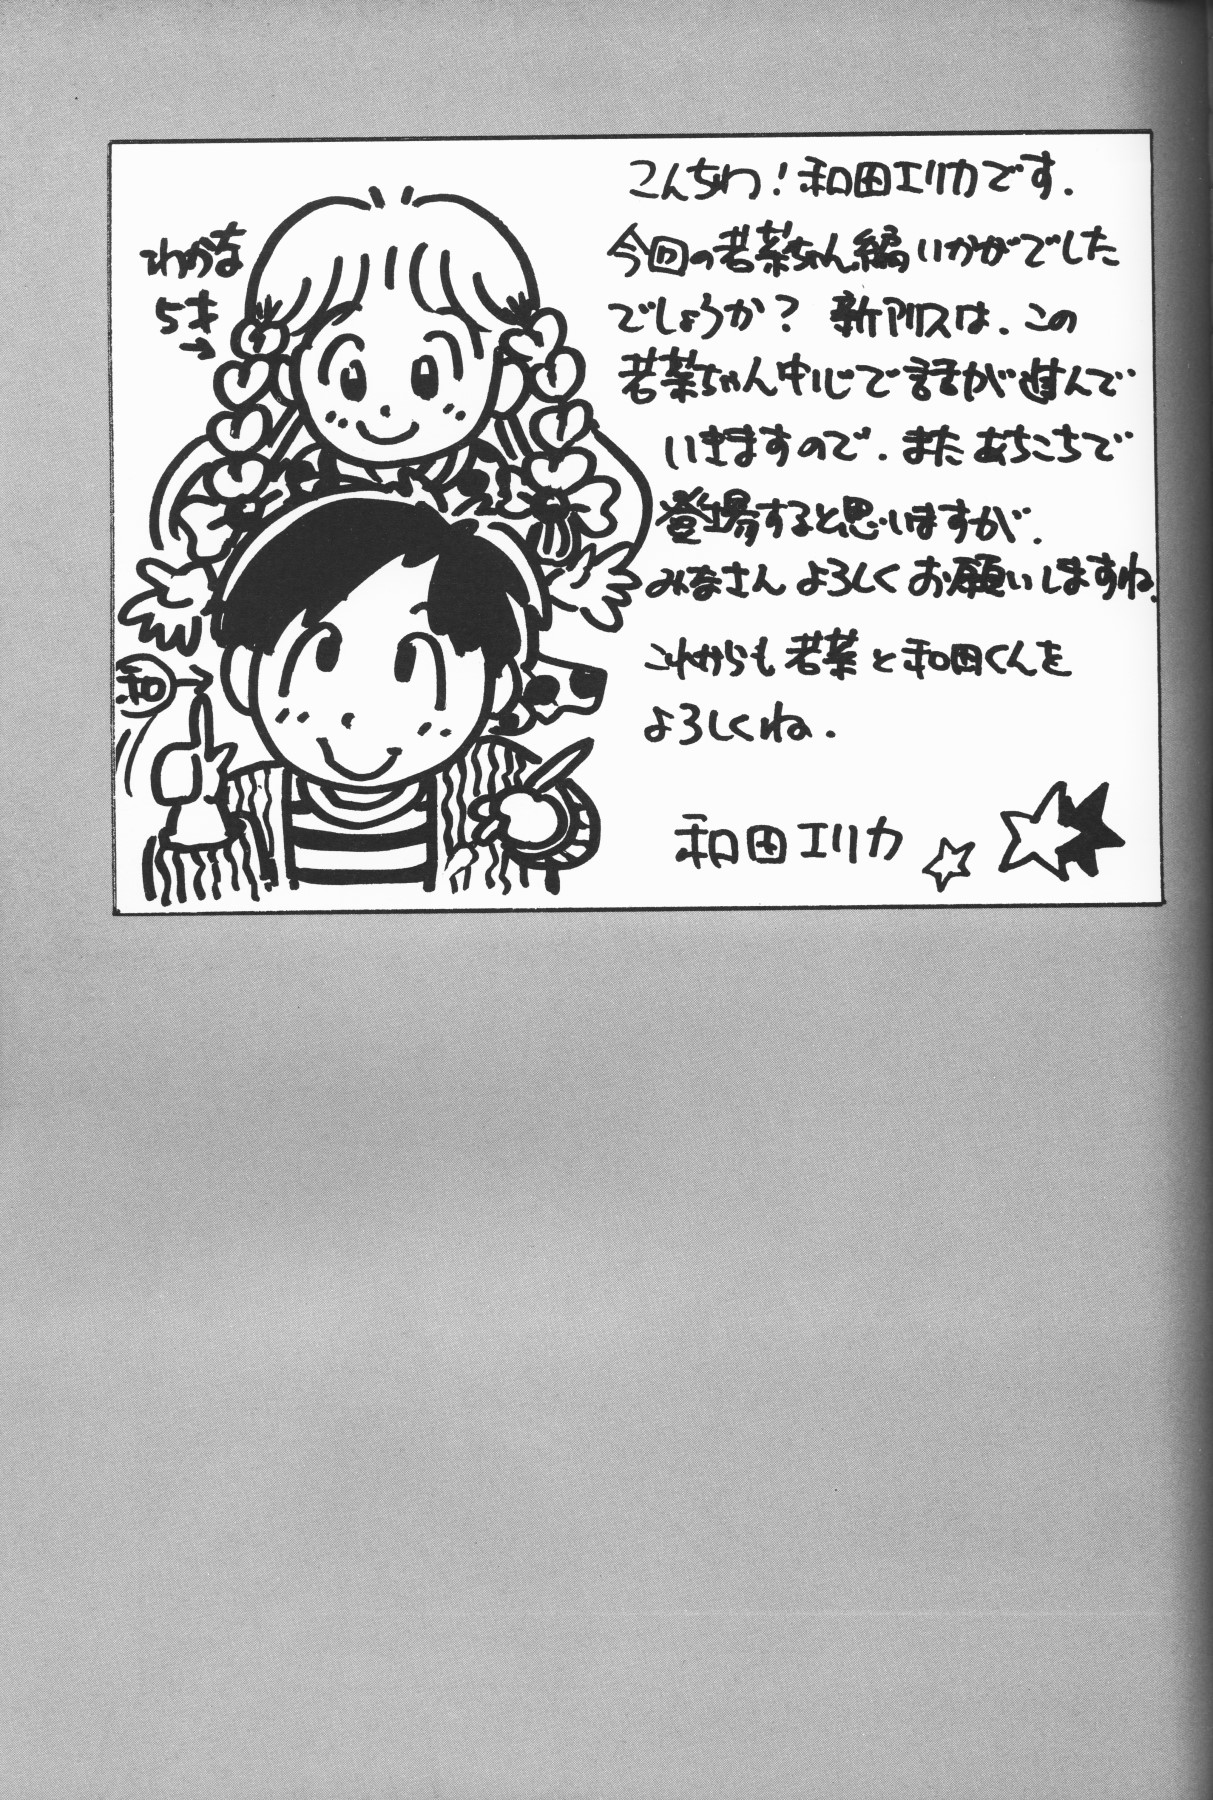 こんちわ！和田エリカです．
今回の若菜ちゃん編いかがでした
でしょうか？ 新アリスは、この
若菜ちゃん中心で話が進んで
いきますので．またあちこちで
登場すると思いますが．
みなさんよろしくお願いしますね．
これからも若菜と和田くんを
よろしくね．
和田エリカ
わかな
5才
和